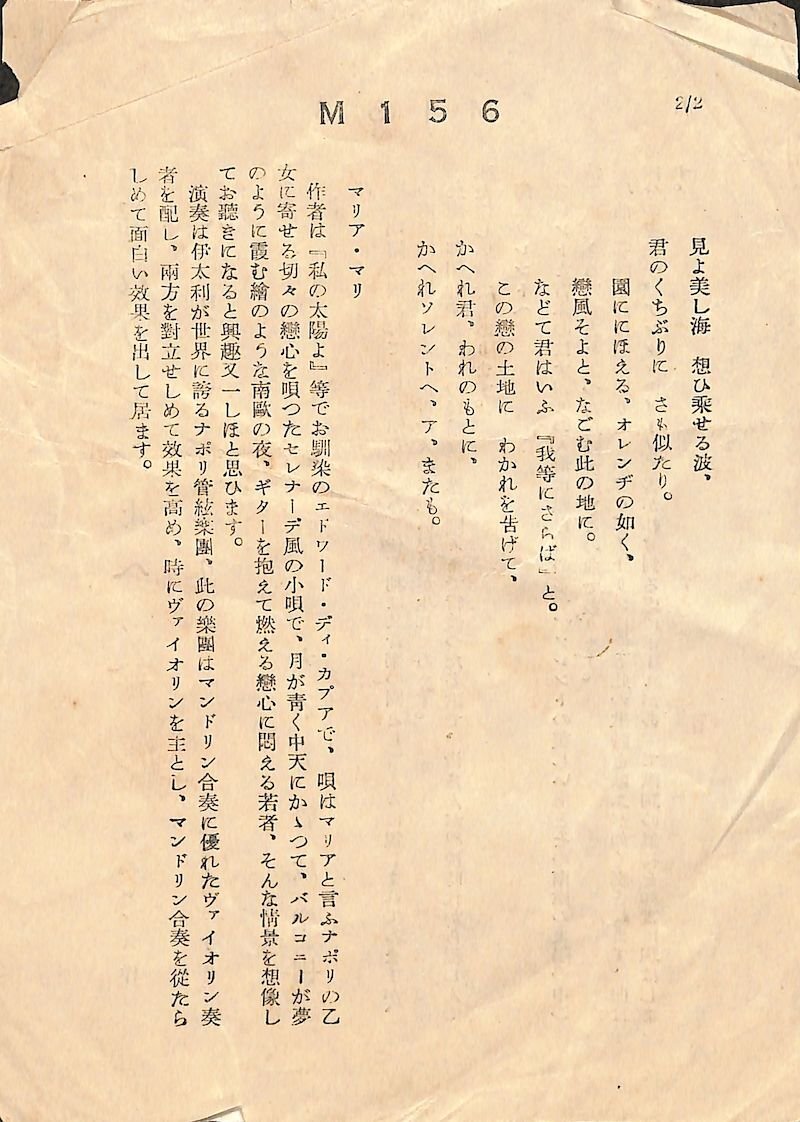 M156
2/2
見よ美し海　想ひ乗せる波、
君のくちぶりに　さも似たり。
園ににほえる、オレンヂの如く、
戀風そよと、なごむ此の地に。
などて君はいふ『我等にさらば』と。
この戀の土地に　わかれを告げて、
かへれ君、われのもとに、
かへれソレントへ、ア、またも。
マリア・マリ
作者は『私の太陽よ』等でお馴染のエドワード・ディ・カプアで、唄はマリアと言ふナポリの乙
女に寄せる切々の戀心を唄つたセレナーデ風の小唄で、月が靑く中天にかゝつて、バルコニーが夢
のように霞む繪のような南歐の夜、ギターを抱えて燃える戀心に悶える若者、そんな情景を想像し
てお聽きになると興趣又一しほと思ひます。
演奏は伊太利が世界に誇るナポリ管絃樂團、此の樂團はマンドリン合奏に優れたヴァイオリン奏
者を配し、兩方を對立せしめて效果を高め、時にヴァイオリンを主とし、マンドリン合奏を從たら
しめて面白い效果を出して居ます。